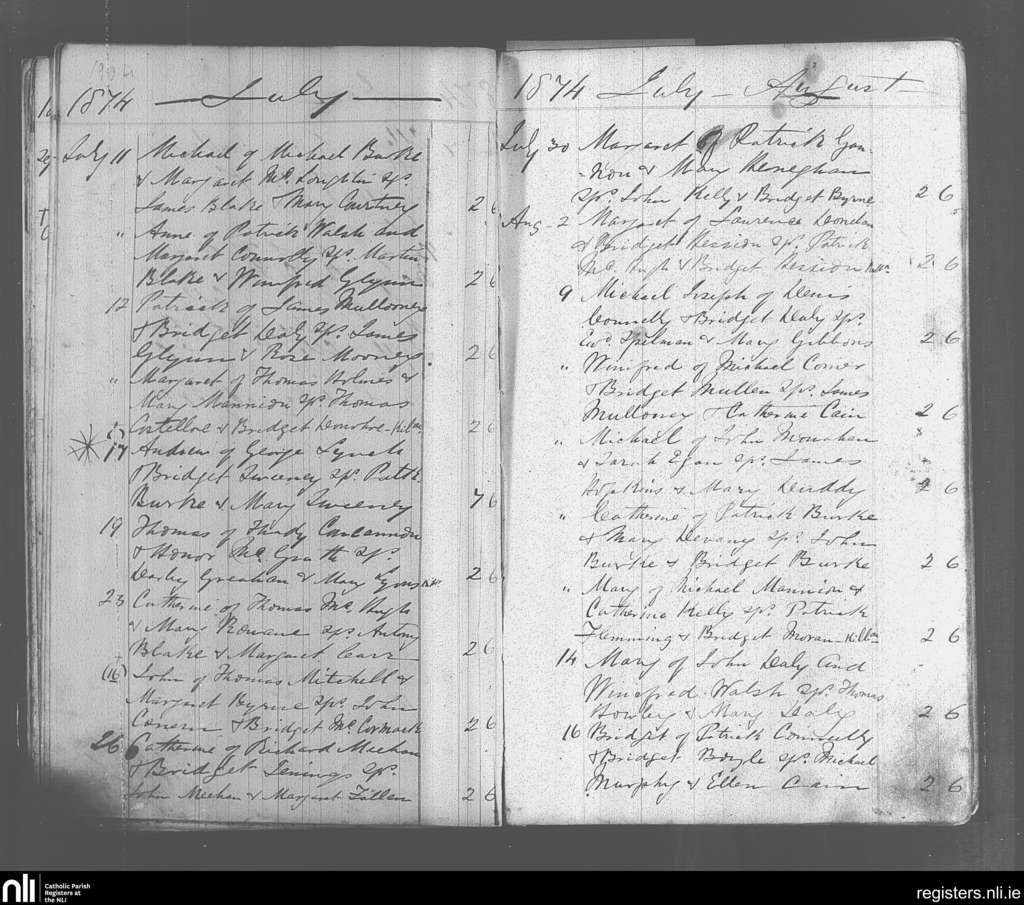 1874 — July —
July 11 Michael of Michael Burke
& Margaret Mc Loughlin Sps.
James Blake & Mary Courtney 2 6
" Anne of Patrick Walsh and
Margaret Connolly Sps. Martin
Blake & Winifred Glynn 2 6
12 Patrick of James Mullooney
& Bridget Daly Sps. James
Glynn & Rose Mooney 2 6
" Margaret of Thomas Holmes &
Mary Mannion Sps Thomas
Costelloe & Bridget Donohoe 2 6
17 Andrew of George Lynch
& Bridget Sweeney Sps. Patk.
Burke & Mary Sweeney 7 6
19 Thomas of Thady Concannon
& Honor Mc Grath Sps.
Darby Greahan & Mary Lyons 2 6
23 Catherine of Thomas Mc Hugh
& Mary Rowane Sps. Antony
Blake & Margaret Carr 2 6
(16) John of Thomas Mitchell &
Margaret Byrne Sps. John
& Bridget Mc Cormack 2 6
26 Catherine of Richard Meehan
& Bridget Jenings Sps.
John Meehan & Margaret Fallon 2 6
1874 July – August
July 30 Margaret of Patrick Gan-
-non & Mary Heneghan
Sps. John Kelly & Bridget Byrne 2 6
Aug - 2 Margaret of Laurence Donelan
& Bridget Hession Sps. Patrick
Mc Hugh & Bridget Hession 2 6
9 Michael Joseph of Denis
Connolly & Bridget Daly Sps.
Spelman & Mary Gibbons 2 6
" Winifred of Michael Comer
& Bridget Mullen Sps. James
Mullooney & Catherine Cain 2 6
" Michael of John Monahan
& Sarah Egan Sps. James
Hopkins & Mary Duddy 2 6
" Catherine of Patrick Burke
& Mary Devany Sps John
Burke & Bridget Burke 2 6
" Mary of Michael Mannion &
Catherine Kelly Sps. Patrick
Flemming & Bridget Moran 2 6
14 Mary of John Daly and
Winefred Walsh Sps. Thomas
Howley & Mary Daly 2 6
16 Bridget of Patrick Connolly
& Bridget Boyle Sps. Michael
Murphy & Ellen Cain 2 6
nli Catholic Parish
Registers at
the NLI
registers.nli.ie